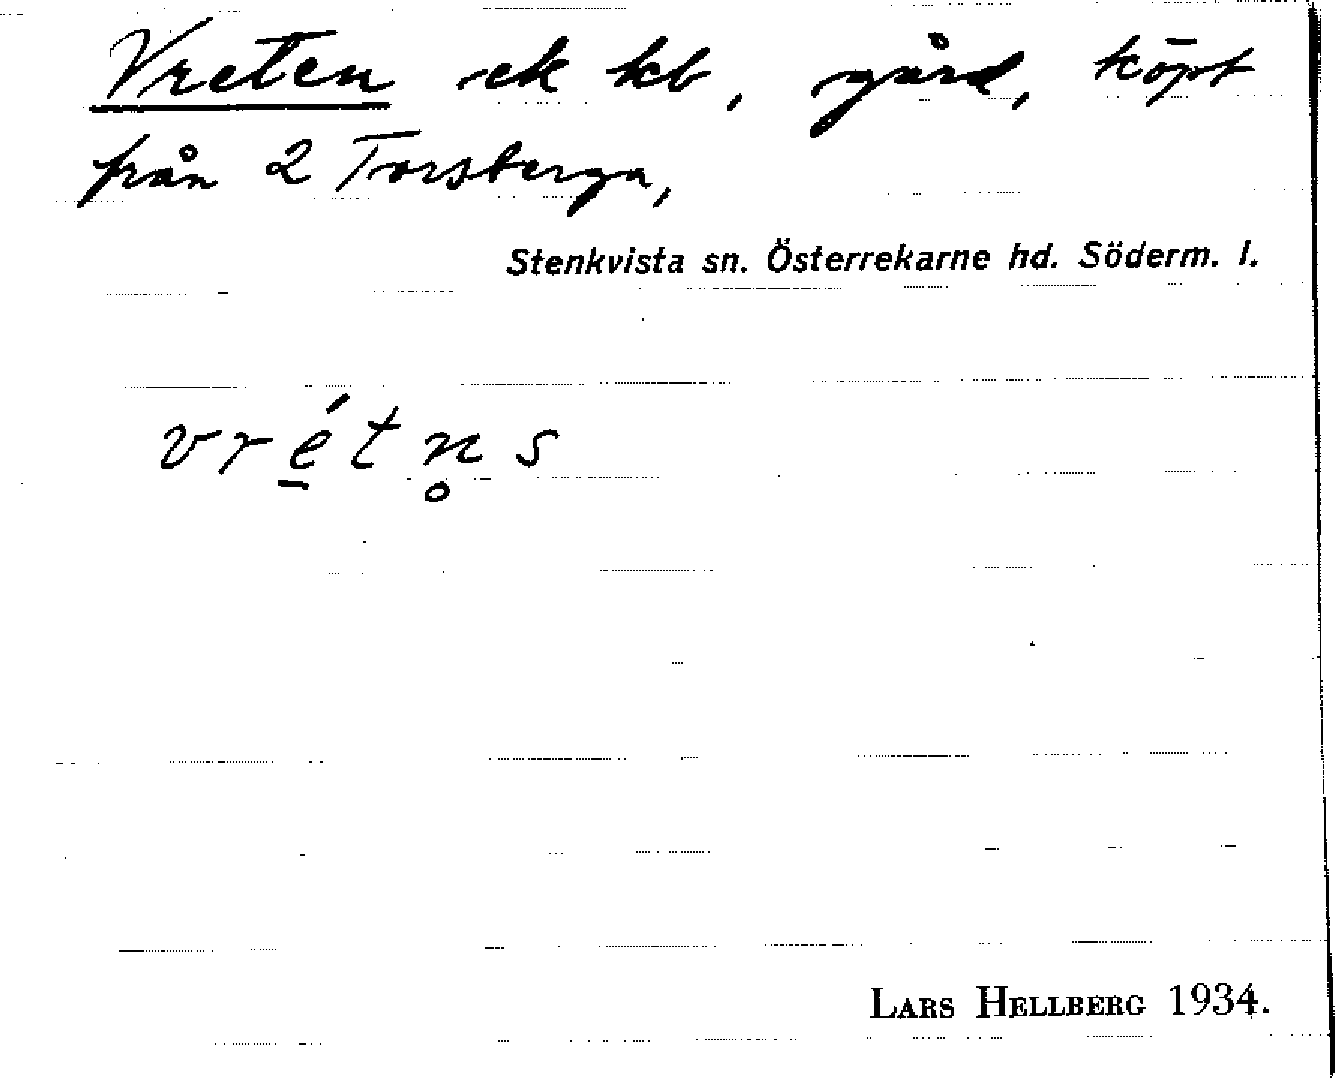 Vreten ek kb, gård, köpt
från 2 Torsberga,
Stenkvista sn. Österrekarne hd. Söderm. l.
vr<u>é</u>tn̥s
LARS HELLBERG 1934.